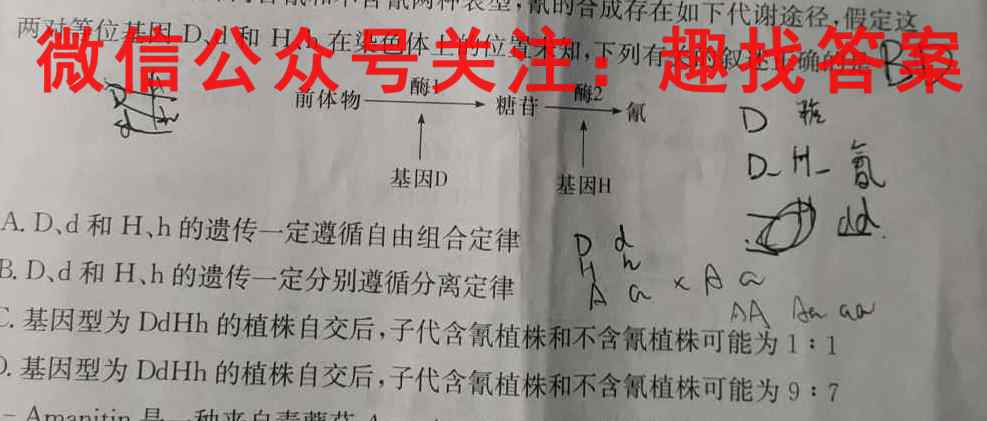 含氰和不含氰两种表型,氰的合成存在如下代谢途径,假定这
两对等位基因D、d和 H、h在染色体上的位置未知,下列有关的叙述正确的是
微信公众号关注:趣找答案
前体物 酶1 糖苷 酶2 氰
基因D 基因H
D
D_ H_ 氰
dd
A. D、d 和 H、h 的遗传一定遵循自由组合定律
B. D、d 和 H、h 的遗传一定分别遵循分离定律
D d
H h
A a × A a
AA Aa aa
C. 基因型为 DdHh 的植株自交后,子代含氰植株和不含氰植株可能为 1:1
D. 基因型为 DdHh 的植株自交后,子代含氰植株和不含氰植株可能为 9:7
Amanitin 是一种来自毒蘑菇